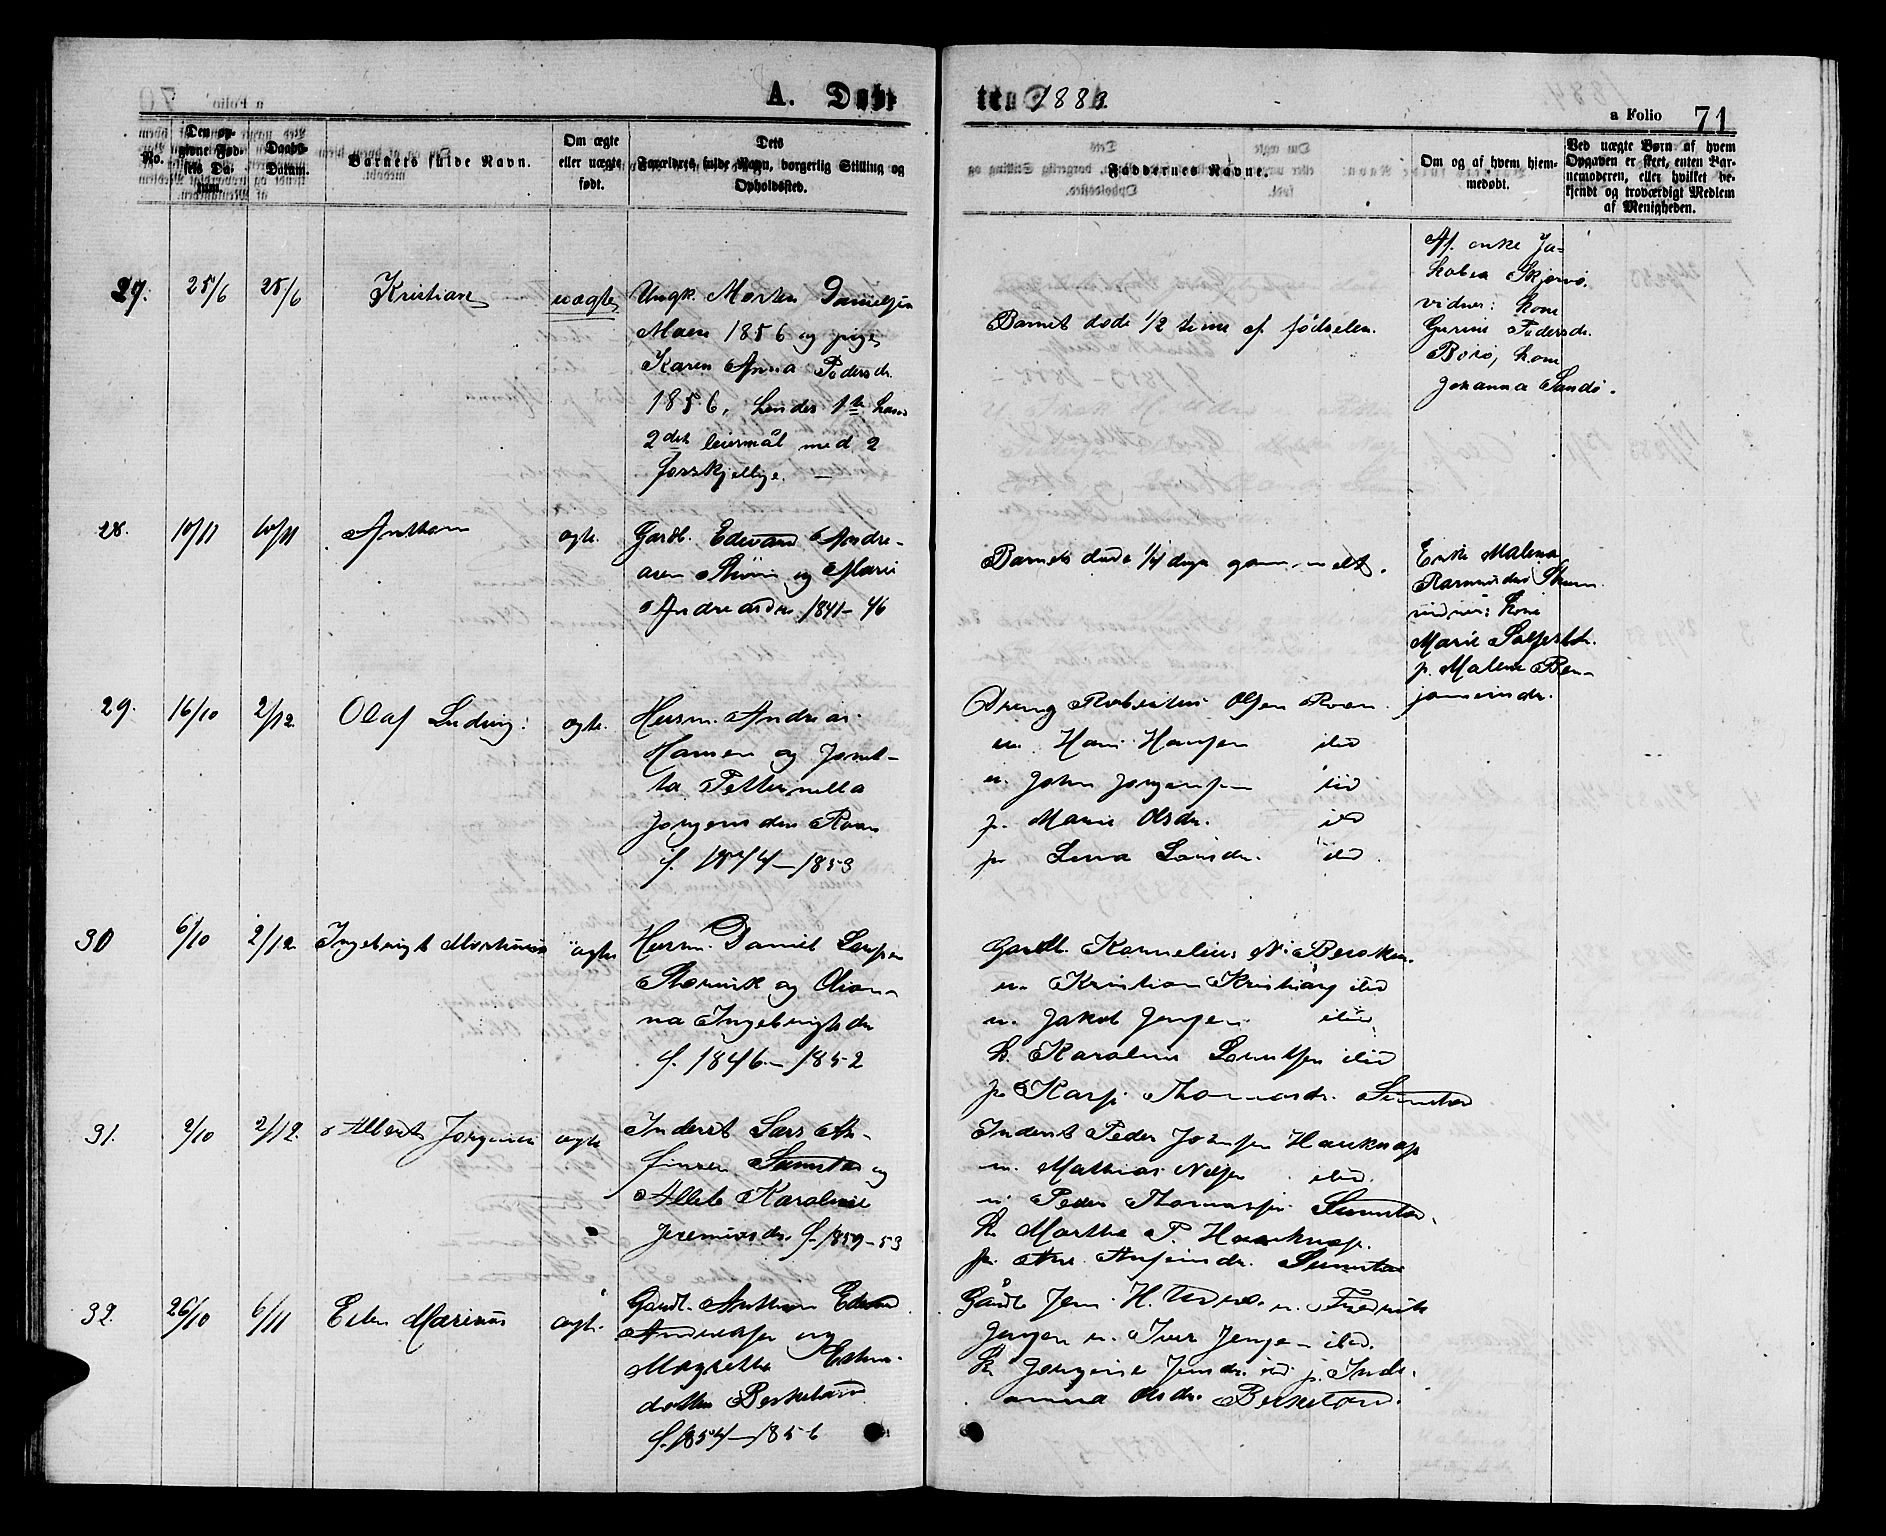 A. Døbte 1883.
a Folio 71
No.
Den op-
givne Fød-
sels Da-
tum.
Daabs-
Datum.
Barnets fulde Navn.
Om ægte
eller uægte
født.
Dets
Forældres fulde Navn, borgerlig Stilling og
Opholdssted.
Faddernes Navne.
Om og af hvem hjem-
medøbt.
Ved uægte Børn af hvem
Opgaven er skeet, enten Bar-
nemoderen, eller hvilket be-
kjendt og troværdigt Medlem
af Menigheden.
27. 25/6 25/6 Kristian uægte
Ungk. Morten Danielsen
Moen 1856 og pige
Karen Anna Pedersdr.
1856, hendes 1te hans
2det leiermål med 2
forskjellige. —
Barnet døde 1/2 time ef. fødselen.
Af enke Ja-
kobea Skjervø.
vidner: kone
Gurine Pedersdr.
Borø, kone
Johanna Sandø.
28. 10/11 10/11 Anthon ægte.
Gardb. Edevard Andre-
asen og Marie
Andreasdr. 1841-46
Barnet døde 1/4 dage gammelt.
Enke Malena
Rasmusdr.
vidner: kone
Marie
p. Malene Ben-
jaminsdr.
29. 16/10 2/12 Olaf Ludvig: ægte.
Husm. Andreas
Hansen og Jonet-
ta Petternella
Jørgensdr. Roan
f. 1844—1853
Dreng Olsen Roan.
u. Hans Hansen ibid
u. John Jørgensen ibid
p. Marie Olsdr. ibid
p. Lena Larsdr. ibid.
30 6/10 2/12 Ingebrigt ægte
Husm. Daniel Larsen
Storvik og Olian-
na Ingebrigtsdr
f. 1846—1852
Gardb. Kornelius N.
u. Kristian ibid
u. Jakob Jensen ibid
k. Karoline ibid
p. Thomasdr. Sumstad
31. 2/10 2/12. Albert Jørginus ægte
Inderst Lars An-
finsen Sumstad og
Karoline
Jeremiasdr. f. 1859-53
Inderst Peder Johnsen
u. Mathias Nilsen ibid.
u. Peder Thomassen Sumstad.
k. Martha P.
p. Ane Anfinsdr. Sumstad
32. 26/10 6/11 Edin Marinus ægte.
Gardb. Anthon Edvard
Andreassen og
Magrethe
datter Berkeland
f. 1854—1856
Gårdb. Jens H. u. Fredrik
Jensen u. Iver Jensen ibid.
k. Jørgine Jensdr. ibid p.
anna Olsdr. Berkeland.